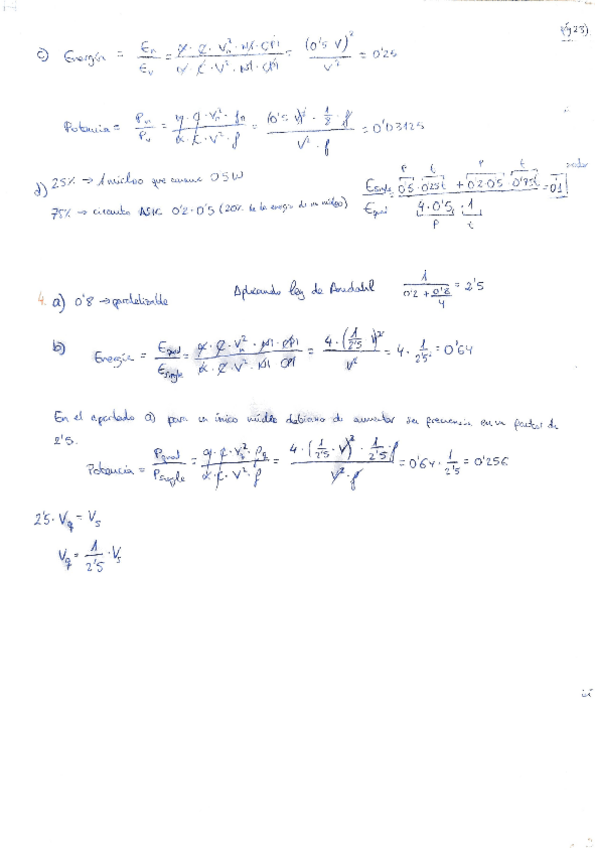 c) Energía = En/Ev = α·C·Vn²·NI·CPI / α·C·V²·NI·CPI = (0'5 V)²/V² = 0'25
Potencia = Pn/Pv = α·C·Vn²·fn / α·C·V²·f = (0'5 V)²·1/8·f / V²·f = 0'03125
d) 25% → 1 núcleo que consume 0'5W
75% → circuito ASIC 0'2·0'5 (20% de la energía de un núcleo)
0'5·0'25t + 0'2·0'5·0'75t / 4·0'5·1 = 0'1
P t P t
P t
4. a) 0'8 → paralelizable Aplicando ley de Amdahl 1 / 0'2 + 0'8/4 = 2'5
b) Energía = Equad/Esingle = α·C·Vn²·NI·CPI / α·C·V²·NI·CPI = 4·(1/2'5 V)² / V² = 4·1/2'5² = 0'64
En el apartado a) para un único núcleo debíamos de aumentar su frecuencia en un factor de
2'5.
Potencia = Pquad/Psingle = 4·(1/2'5·V)²·1/2'5·f / V²·f = 0'64·1/2'5 = 0'256
2'5·Vq = Vs
Vq = 1/2'5·Vs